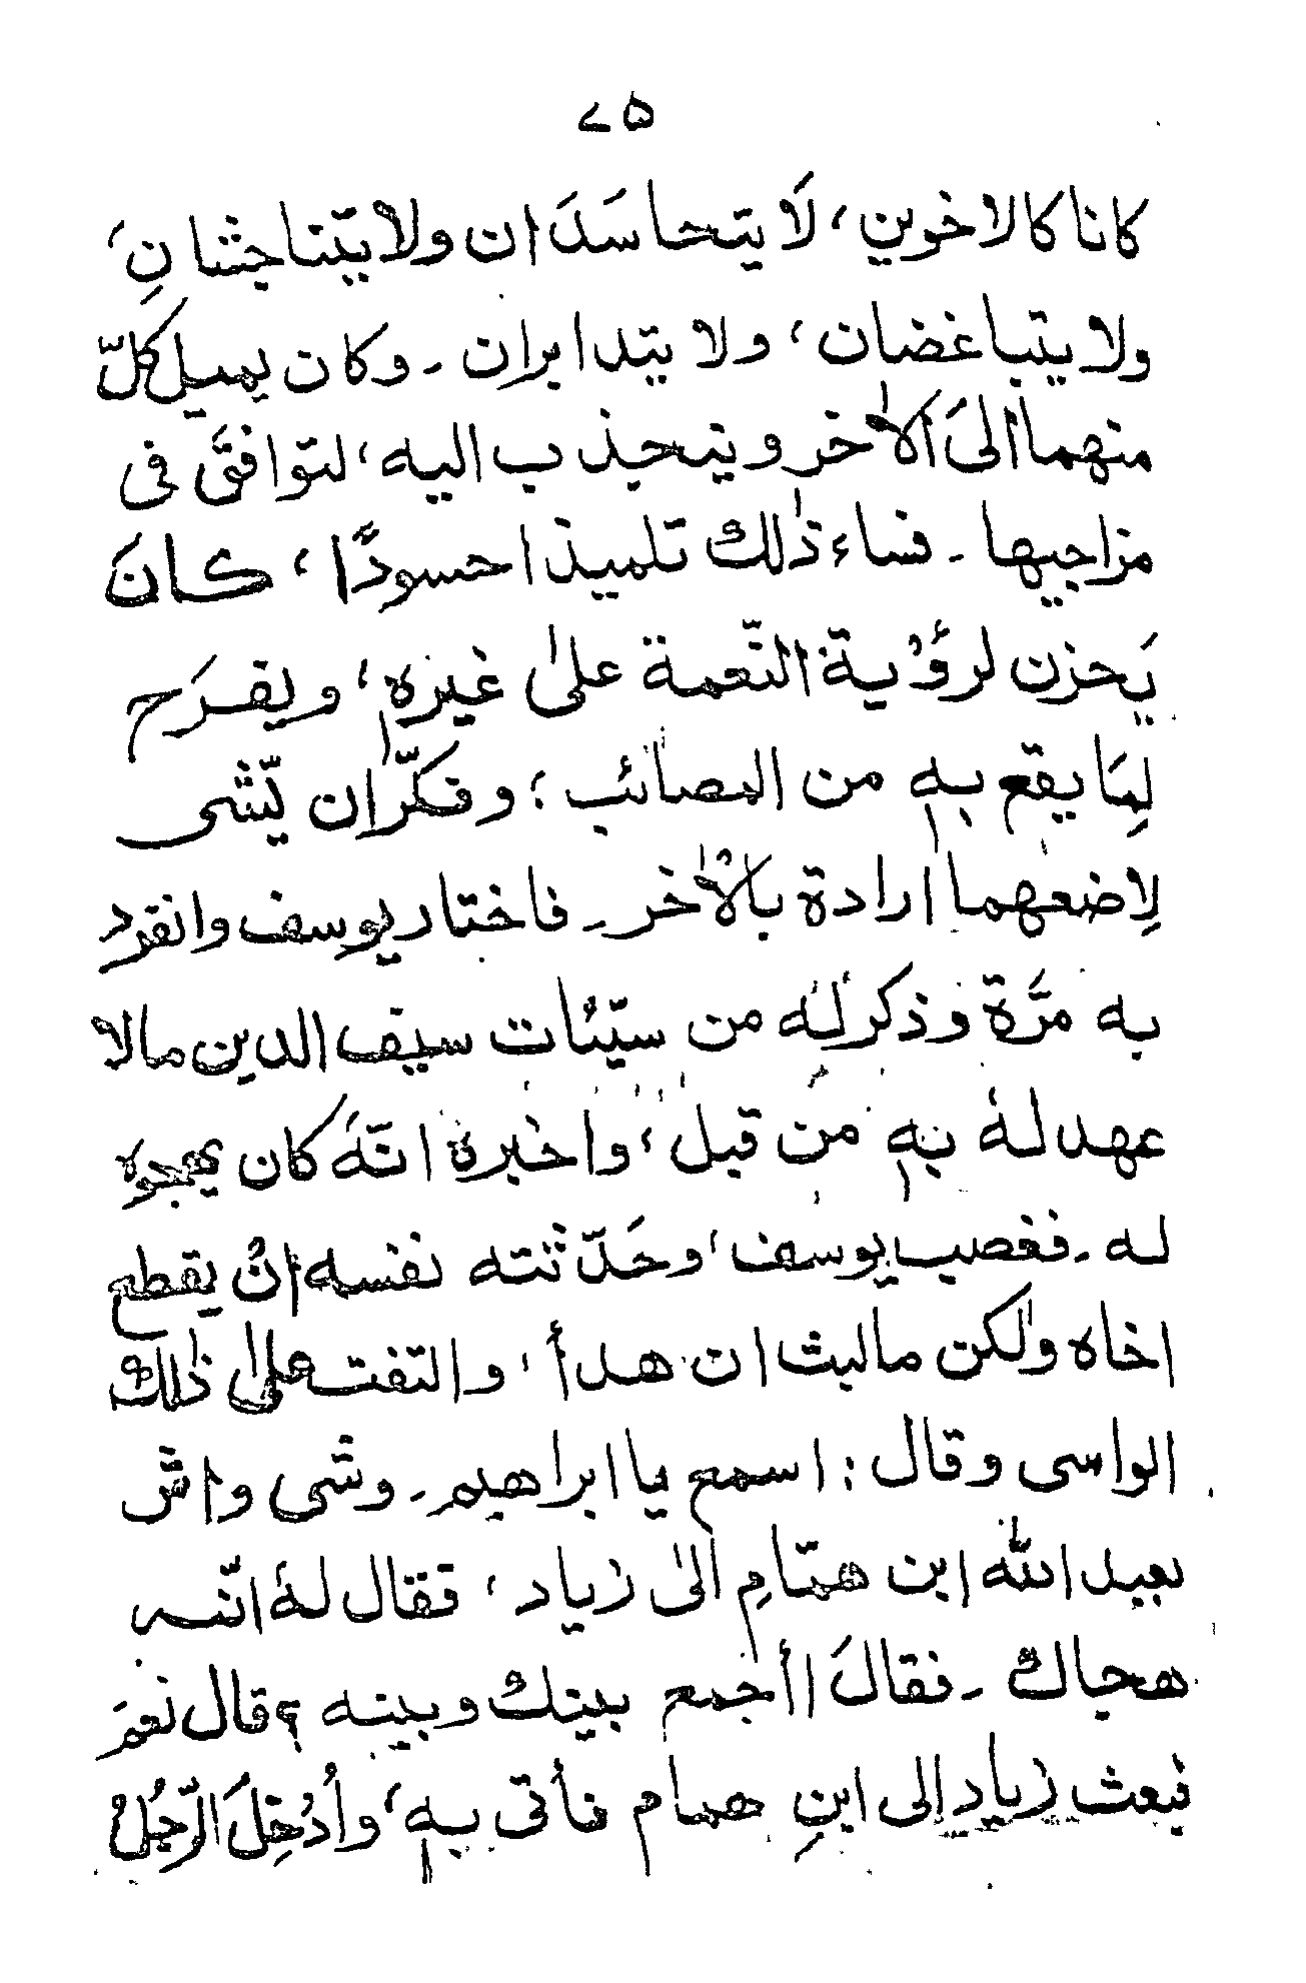 ۷۵
كانا كالاخوين، لَا يتحاسَدَان ولا يتّناجثنانِ،
ولا يتباغضان، ولا يتدابران ۔ وكان يميل كلّ
منهما الىَ الاٰخر وينجذب اليه، لتوافقَّ فى
مزاجيها ۔ فساء ذٰلك تلميذا حسودًا، كانَ
يَحزن لرؤْية النّعمة علىٰ غيرهٖ، ويفرَح
لِمَا يقع بهٖ من المصائب؛ وفكّر ان يّشى
لِاضعهما ارادة بالْاٰخر ۔ فاختار يوسف وانفرد
به مرَّة وذكر لهٗ من سيّئات سيف الدين مالا
عهد لهٗ بهٖ من قبل، واخبرهٗ انّهٗ كان يهجوه
له ۔ فغصب يوسف، وحَدّثته نفسه انْ يقطع
اخاه ولٰكن مالبث ان هدأ، والتفت علىٰ ذٰلك
الواسى وقال: اسمع يا ابراهيم ۔ وشى واشّ
بعبد الله ابن همّامِ الىٰ زياد، فقال لهٗ انّه
هجاك ۔ فقالَ أأجمع بينك وبينه؟ قال نعمَ
فبعث زياد إلى ابنِ همام فأتى بهٖ، وأُدْخِلَ الرّجُلُ